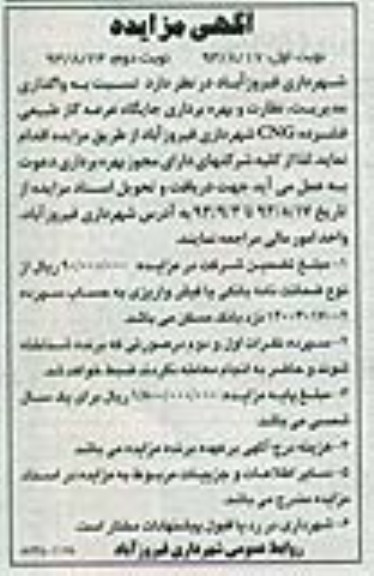 آگهی مزایده
نوبت اول: ۹۳/۸/۱۷ نوبت دوم: ۹۳/۸/۲۶
شهرداری فیروزآباد در نظر دارد نسبت به واگذاری
مدیریت، نظارت و بهره برداری جایگاه عرضه گاز طبیعی
فشرده CNG شهرداری فیروزآباد از طریق مزایده اقدام
نماید لذا از کلیه شرکتهای دارای مجوز بهره برداری دعوت
به عمل می آید جهت دریافت و تحویل اسناد مزایده از
تاریخ ۹۳/۸/۱۷ تا ۹۳/۹/۳ به آدرس شهرداری فیروزآباد،
واحد امور مالی مراجعه نمایند.
۱- مبلغ تضمین شرکت در مزایده ریال از
نوع ضمانت نامه بانکی یا فیش واریزی به حساب سپرده
نزد بانک مسکن می باشد.
۲- سپرده نفرات اول و دوم درصورتی که برنده شناخته
شوند و حاضر به انجام معامله نگردند ضبط خواهد شد.
۳- مبلغ پایه مزایده ریال برای یک سال
شمسی می باشد.
۴- هزینه درج آگهی برعهده برنده مزایده می باشد.
۵- سایر اطلاعات و جزییات مربوط به مزایده در اسناد
مزایده مندرج می باشد.
۶- شهرداری در رد یا قبول پیشنهادات مختار است.
روابط عمومی شهرداری فیروزآباد